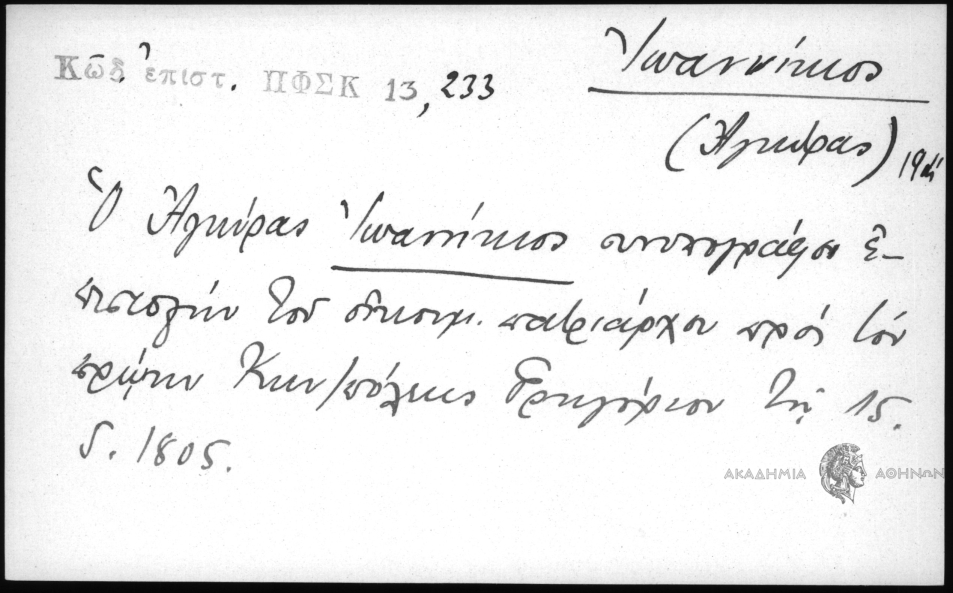 Κῶδ. ἐπιστ. ΠΦΣΚ 13, 233
Ἰωαννίκιος
(Ἀγκύρας) 19
Ὁ Ἀγκύρας Ἰωαννίκιος συνυπογράφει ἐ-
πιστολὴν τοῦ οἰκουμ. πατριάρχου πρὸς τὸν
πρώην Κων/πόλεως Γρηγόριον τῇ 15.
5. 1805.
ΑΚΑΔΗΜΙΑ ΑΘΗΝΩΝ